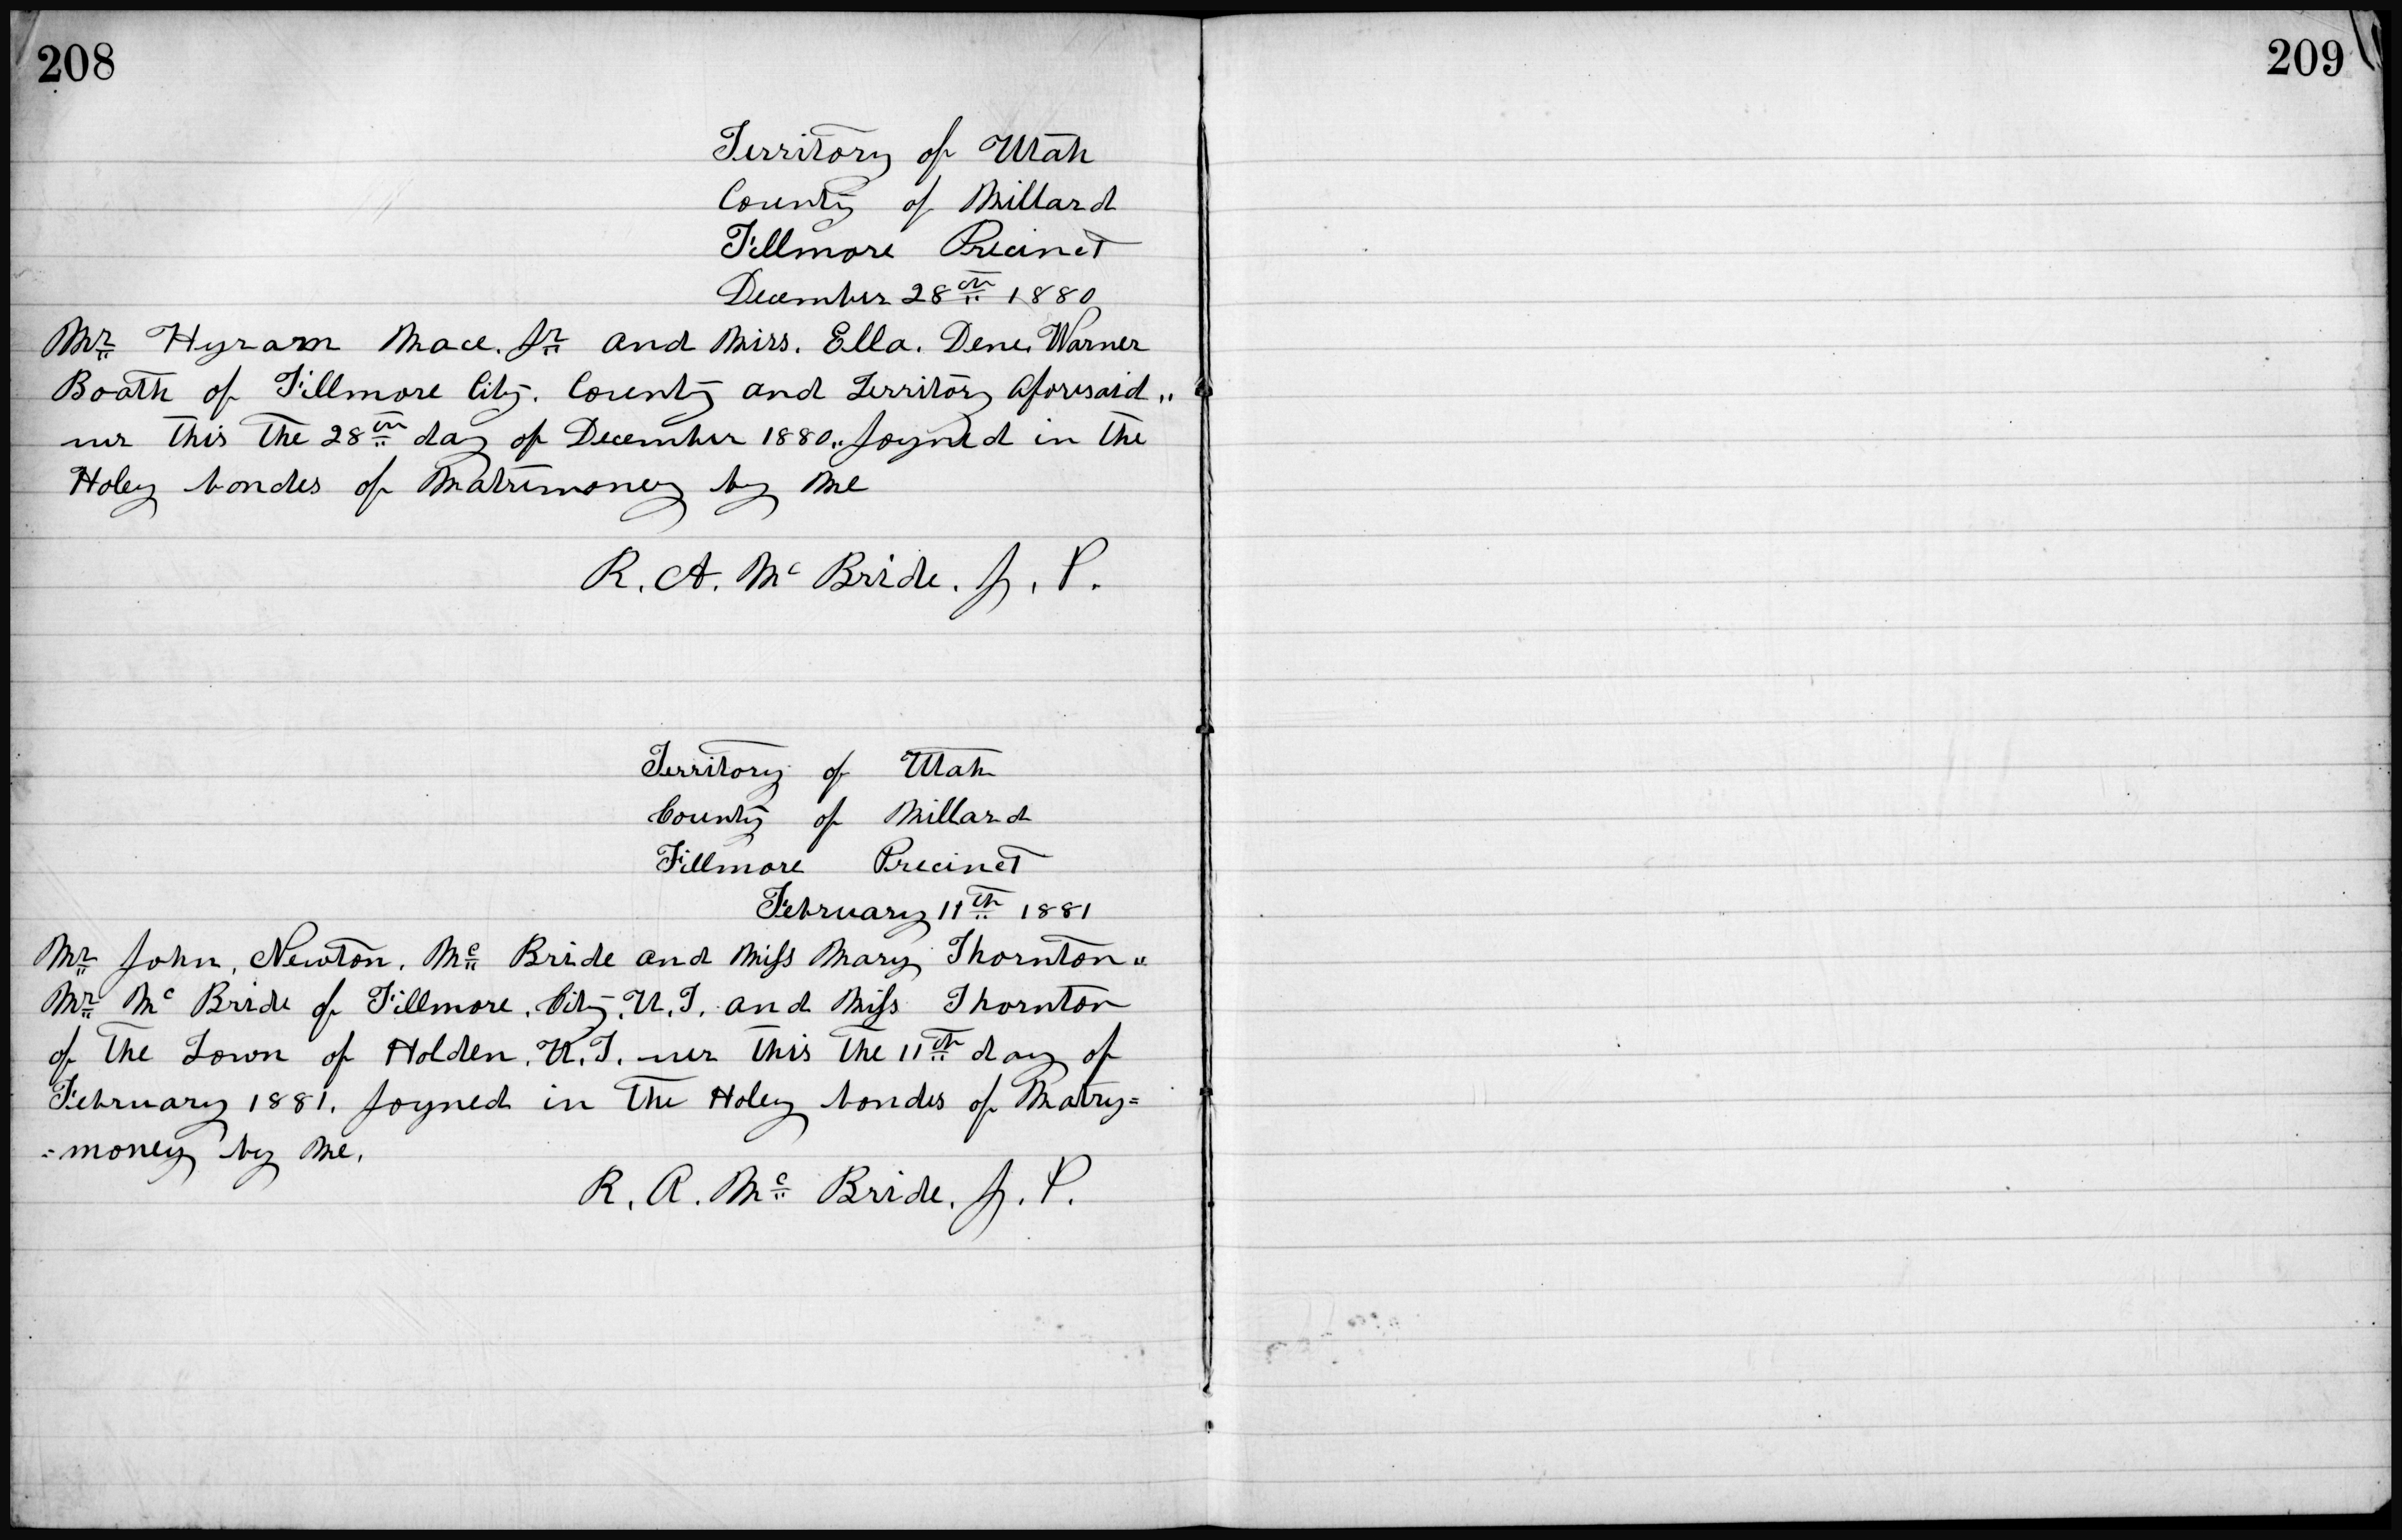 208
Territory of Utah
County of Millard
Fillmore Precinct
December 28th 1880
Mr Hyram Mace. Jr and Miss. Ella. Dene. Warner
Boath of Fillmore City. County and Territory aforesaid"
wer this the 28th day of December 1880" Joyned in the
Holey bondes of Matrimoney by Me
R. A. Mc Bride. J. P.
Territory of Utah
County of Millard
Fillmore Precinct
February 11th 1881
Mr John. Newton. Mc Bride and Miss Mary Thornton"
Mr Mc Bride of Fillmore. City. U. T. and Miss Thornton
of the Town of Holden. U. T. wer this the 11th day of
February 1881. Joyned in the Holey bondes of Matry=
=money by Me.
R. A. Mc Bride. J. P.
209